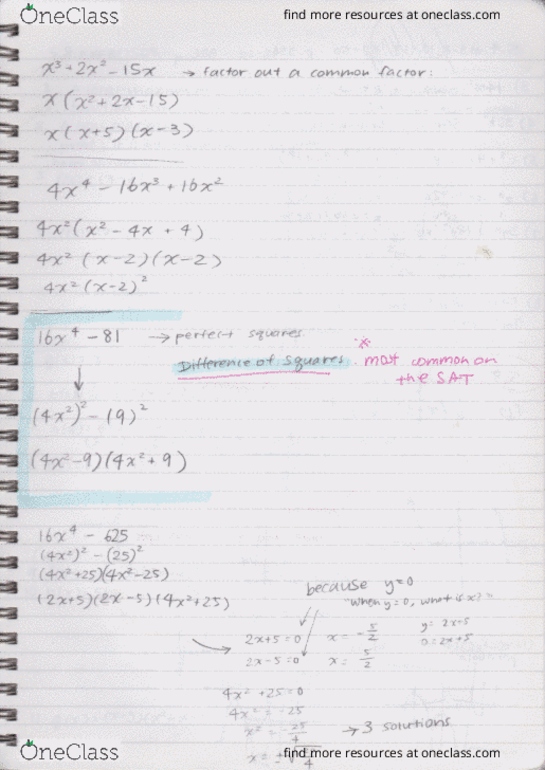 OneClass
find more resources at oneclass.com
x³ + 2x² - 15x → factor out a common factor:
x(x² + 2x - 15)
x(x+5)(x-3)
4x⁴ - 16x³ + 16x²
4x²(x² - 4x + 4)
4x²(x-2)(x-2)
4x²(x-2)²
16x⁴ - 81 → perfect squares
Difference of squares * most common on
the SAT
(4x²)² - (9)²
(4x²-9)(4x²+9)
16x⁴ - 625
(4x²)² - (25)²
(4x²+25)(4x²-25)
(2x+5)(2x-5)(4x²+25)
because y=0
"when y=0, what is x?"
2x+5=0 x = -5/2 y = 2x+5
2x-5=0 x = 5/2 0=2x+5
4x² + 25=0
4x² = -25
x² = -25/4 → 3 solutions
OneClass
find more resources at oneclass.com